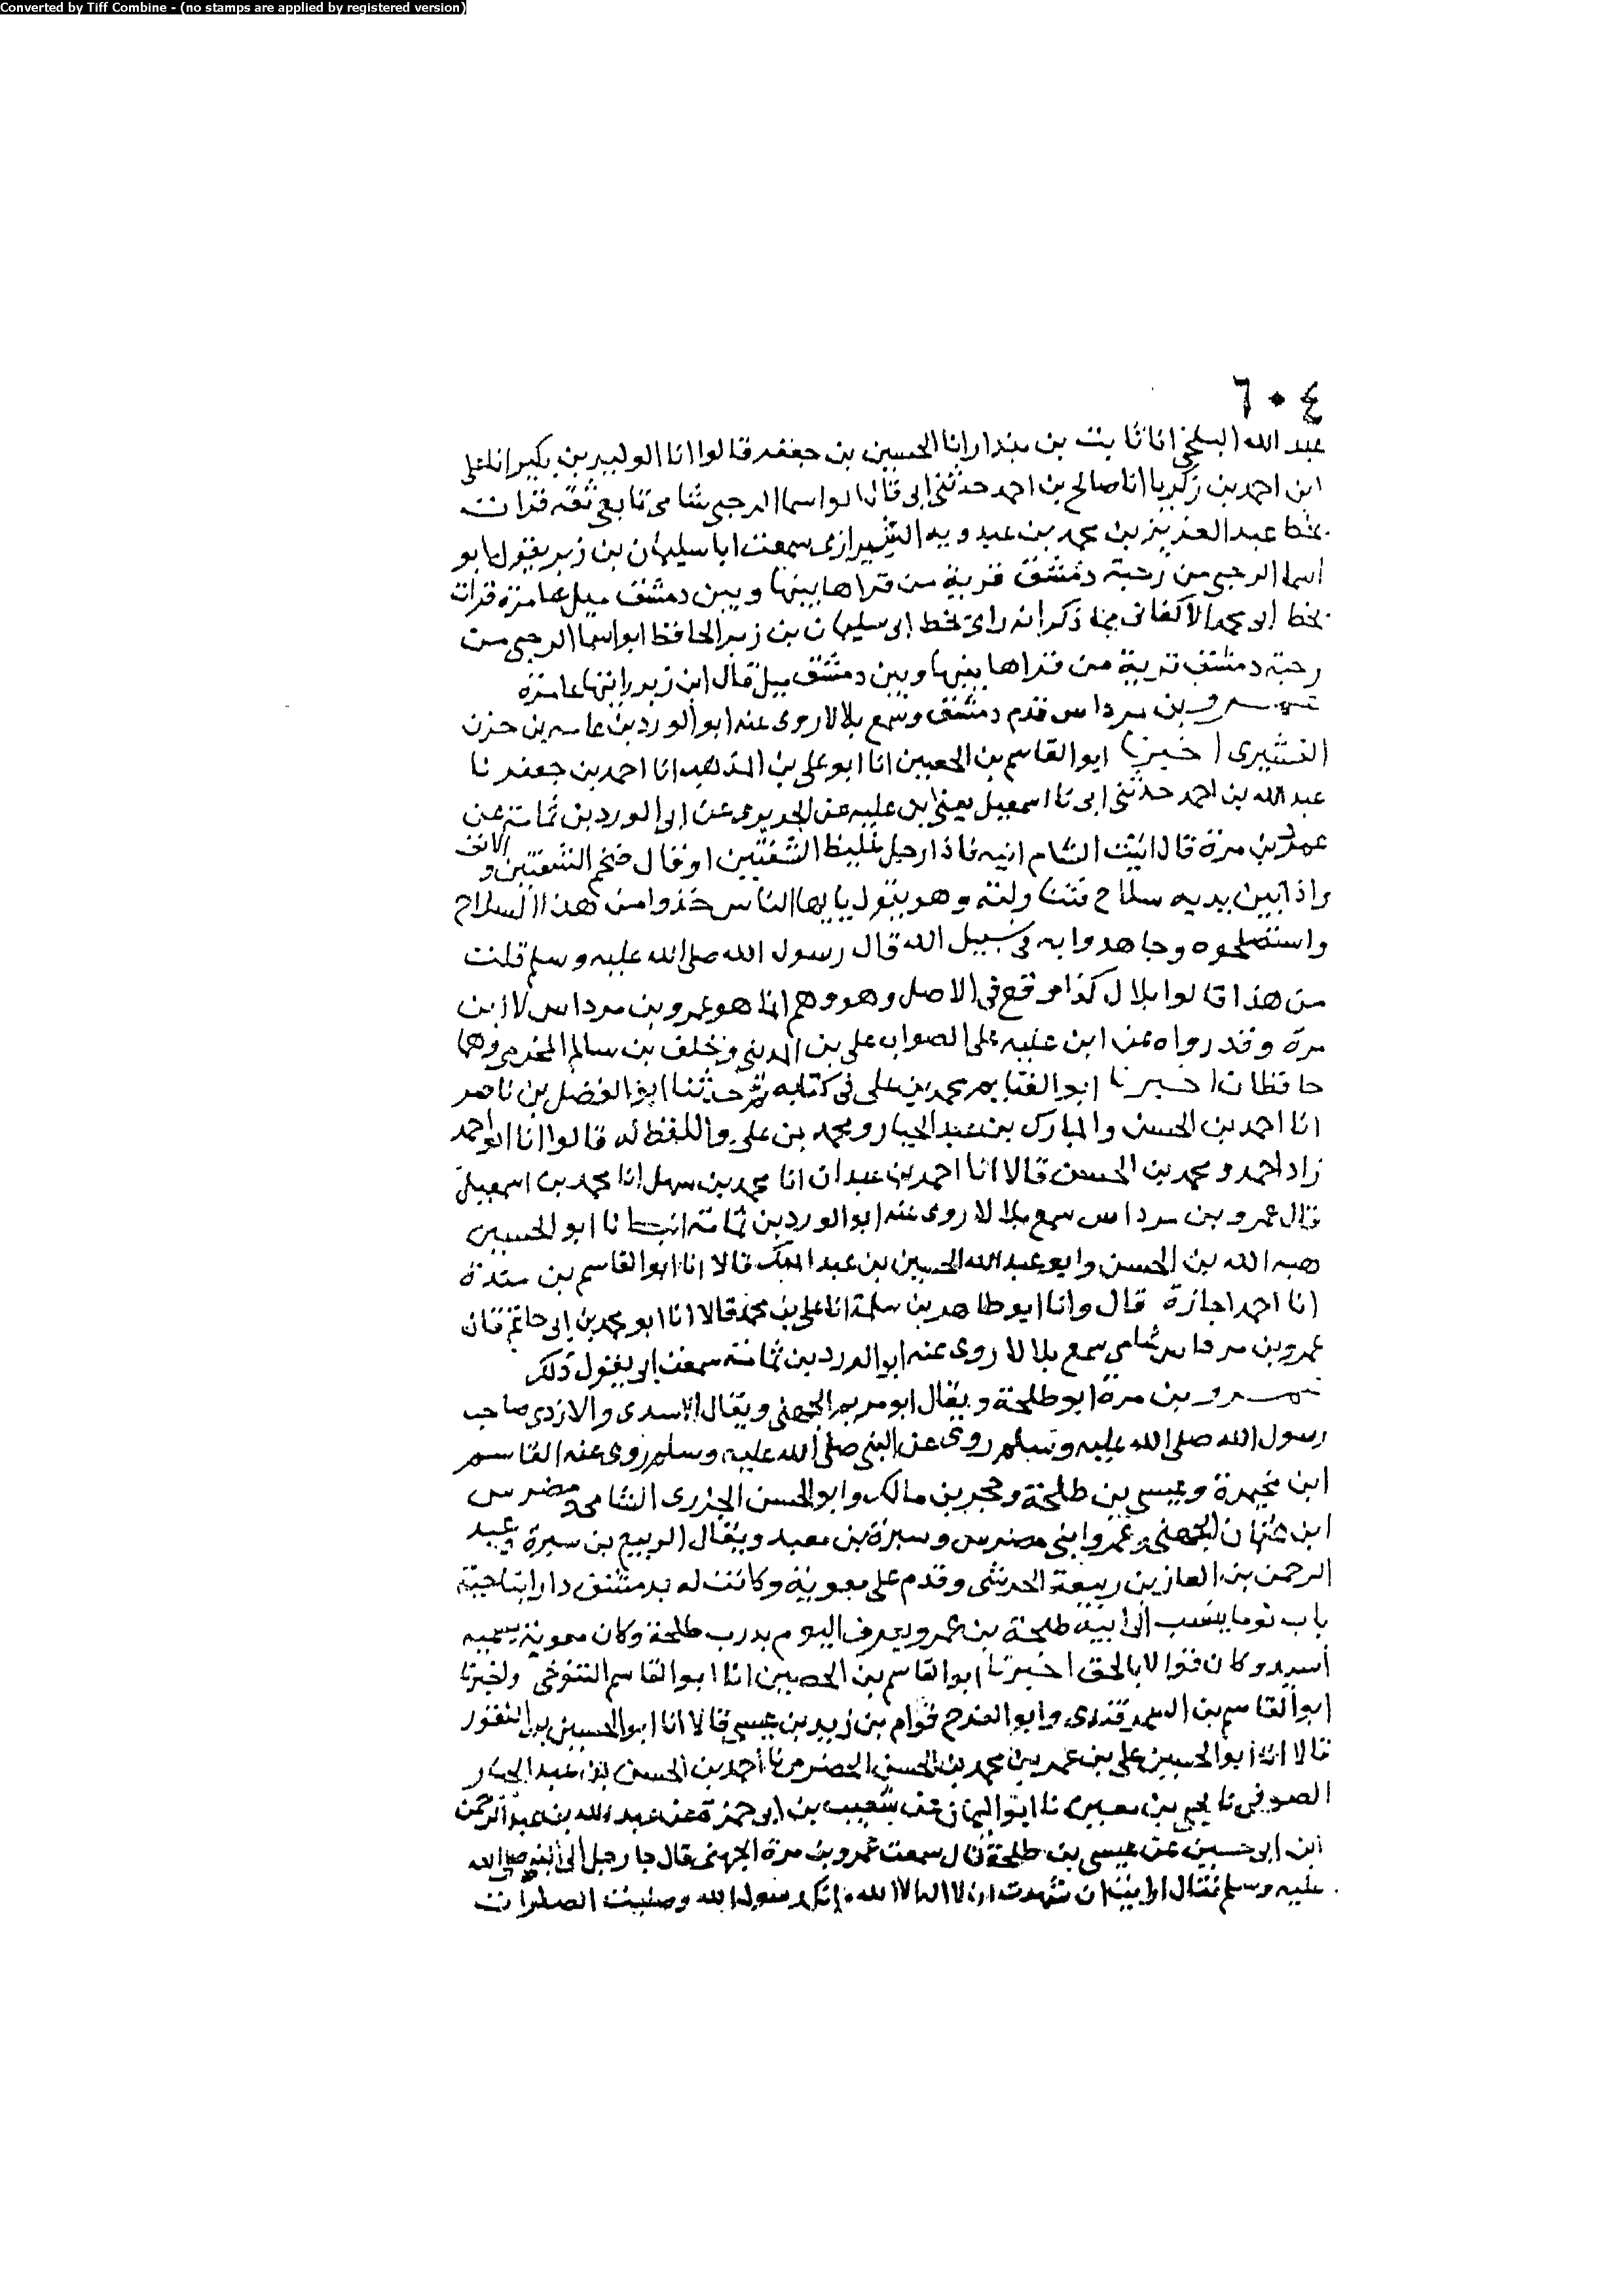 Converted by Tiff Combine - (no stamps are applied by registered version)
٦٠٤
عبد الله البلخي انا ثابت بن بندار انا الحسين بن جعفر قالوا انا الوليد بن بكير انا على
ابن احمد بن زكريا انا صالح بن احمد حدثني ابى قال ابو اسما الرحبي شامى تابعي ثقه قرات
بخط عبد العزيز بن محمد بن عبدويه الشيرازى سمعت ابا سليمان بن زبر يقول ابو
اسما الرحبي من رحبة دمشق قرية من قراها بينها وبين دمشق ميل عامرة قرات
بخط ابى محمد الاكفانى مما ذكر انه راى بخط ابى سليمان بن زبر الحافظ ابو اسما الرحبي من
رحبة دمشق قرية من قراها بينها وبين دمشق ميل قال ابن زبر رايتها عامرة
عمرو بن مرداس قدم دمشق وسمع بلالا روى عنه ابو الورد بن ثمامه بن حزن
القشيرى اخبرنا ابو القاسم بن الحصين انا ابو على بن المذهب انا احمد بن جعفر نا
عبد الله بن احمد حدثني ابى نا اسمعيل يعني ابن عليه عن الجريرى عن ابى الورد بن ثمامة عن
عمرو بن مرة قال اتيت الشام اتيه فاذا رجل غليظ الشفتين او قال ضخم الشفتين والانف
واذا بين يديه سلاح فتناولته وهو يقول يا ايها الناس خذوا من هذا السلاح
واستصلحوه وجاهدوا به في سبيل الله قال رسول الله صلى الله عليه وسلم قلت
من هذا قالوا بلال كذا وقع في الاصل وهو وهم انما هو عمرو بن مرداس لا ابن
مرة وقد رواه عن ابن عليه على الصواب على بن المديني وخلف بن سالم المخرمى وهما
حافظان اخبرنا ابو الغنايم محمد بن على في كتابه ثم حدثنا ابو الفضل بن ناصر
انا احمد بن الحسن والمبارك بن عبد الجبار ومحمد بن على واللفظ له قالوا انا ابو احمد
زاد احمد ومحمد بن الحسن قالا انا احمد بن عبدان انا محمد بن سهل انا محمد بن اسمعيل
قال عمرو بن مرداس سمع بلالا روى عنه ابو الورد بن ثمامة انبانا ابو الحسين
هبه الله بن الحسن وابو عبد الله الحسين بن عبد الملك قالا انا ابو القاسم بن مندة
انا احمد اجازة قال وانا ابو طاهر بن سلمة انا على بن محمد قالا انا ابو محمد بن ابى حاتم قال
عمرو بن مرداس شامي سمع بلالا روى عنه ابو الورد بن ثمامة سمعت ابى يقول ذلك
عمرو بن مرة ابو طلحة ويقال ابو مريم الجهني ويقال الاسدى والازدى صاحب
رسول الله صلى الله عليه وسلم روى عن النبي صلى الله عليه وسلم روى عنه القاسم
ابن مخيمرة وعيسى بن طلحة وحجر بن مالك وابو الحسن الجزرى الشامى ومضرس
ابن عثمان الجهني وعمرو ابنى مضرس وسبرة بن معبد ويقال الربيع بن سبرة وعبد
الرحمن بن الغاز بن ربيعة الجرشى وقدم على معوية وكانت له بدمشق دارا بناحية
باب توما ينسب الى ابنه طلحة بن عمرو يعرف اليوم بدرب طلحة وكان معوية يسميه
أسيد وكان قوالا بالحق اخبرنا ابو القاسم بن الحصين انا ابو القاسم التنوخي واخبرنا
ابو القاسم بن السمرقندى وابو الفرج قوام بن زيد بن عيسى قالا انا ابو الحسين بن النقور
قالا انا ابو الحسين على بن عمر بن محمد بن الحسن الحضرمى نا احمد بن الحسن بن عبد الجبار
الصوفى نا يحيى بن معين نا ابو اليمان عن شعيب بن ابى حمزة عن عبد الله بن عبد الرحمن
ابن ابى حسين عن عيسى بن طلحة قال سمعت عمرو بن مرة الجهنى قال جا رجل الى النبي صلى الله
عليه وسلم فقال ارايت ان شهدت ان لا اله الا الله وانك رسول الله وصليت الصلوات